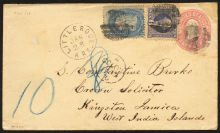 LITTLE ROCK
ARK.
10
S. Constantine Burke
Crown Solicitor
Kingston Jamaica
West India Islands